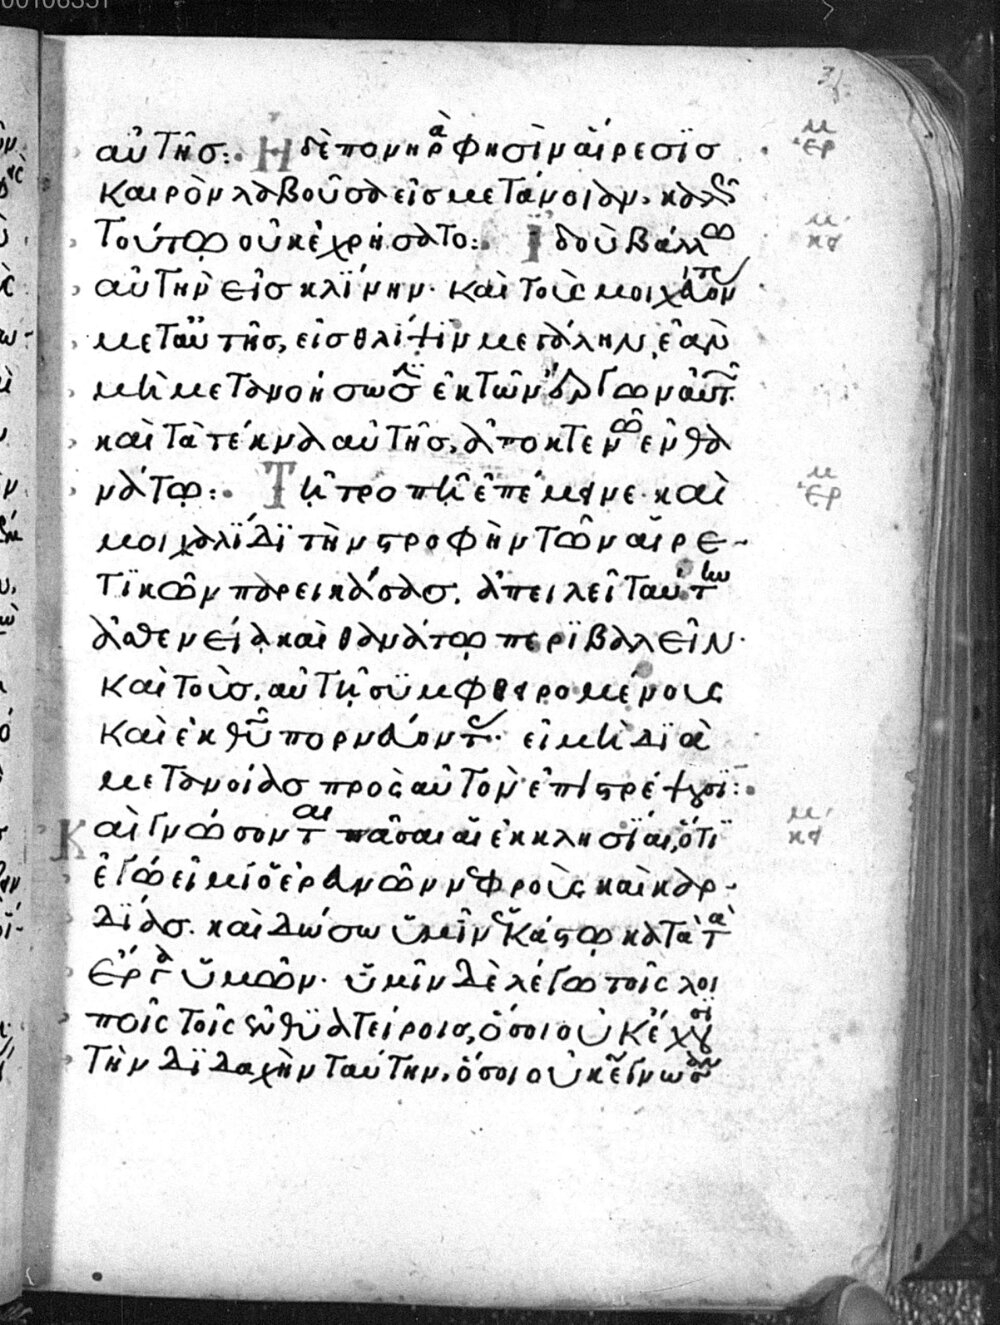 00106351
αὐτῆσ:. Ἡ δὲ πονηρὰ φησὶν αἵρεσϊσ
καιρὸν λαβοῦσα εἰσ μετάνοιαν. καὶ
τούτω οὐκ ἐχρήσατο:. Ἰδοὺ βάλλω
αὐτὴν εἰσ κλΐνην. καὶ τοὺς μοιχεύοντας
μετ αὐτῆσ, εἰσ θλίψιν μεγάλην, ἐὰν
μὴ μετανοήσωσϊ ἐκ τῶν ἔργων αὐτ
καὶ τὰ τέκνα αὐτῆσ, ἀποκτενῶ ἐν θα
νάτω:. Τῆ τροπῆ ἐπέμεινε. καὶ
μοιχαλΐδϊ τὴν στροφὴν τῶν αἱρε-
τϊκῶν παρεικάσασ. ἀπειλεῖ ταύτην
ἀσθενεία καὶ θανάτω περϊβαλεῖν.
καὶ τοὺσ. αὐτῆ συμφθειρομένους
καὶ ἐκ θῦ πορνεύοντας. εἰ μὴ δϊὰ
μετανοίασ πρὸς αὐτὸν ἐπιστρέψουσϊ:.
Καὶ γνώσονται πᾶσαι αἱ ἐκκλησΐαι, ὅτϊ
ἐγώ εἰμί ὁ ἐρευνῶν νεφροὺς καὶ καρ-
δΐασ. καὶ δώσω ὑμῖν ἑκάστω κατὰ τὰ
ἔργα ὑμῶν. ὑμῖν δὲ λέγω τοῖς λοι
ποῖς τοῖς ἐν θϋατείροισ, ὅσοι οὐκ ἔχουσϊ
τὴν δϊδαχὴν ταύτην. ὅσοι οὐκ ἔγνωσαν